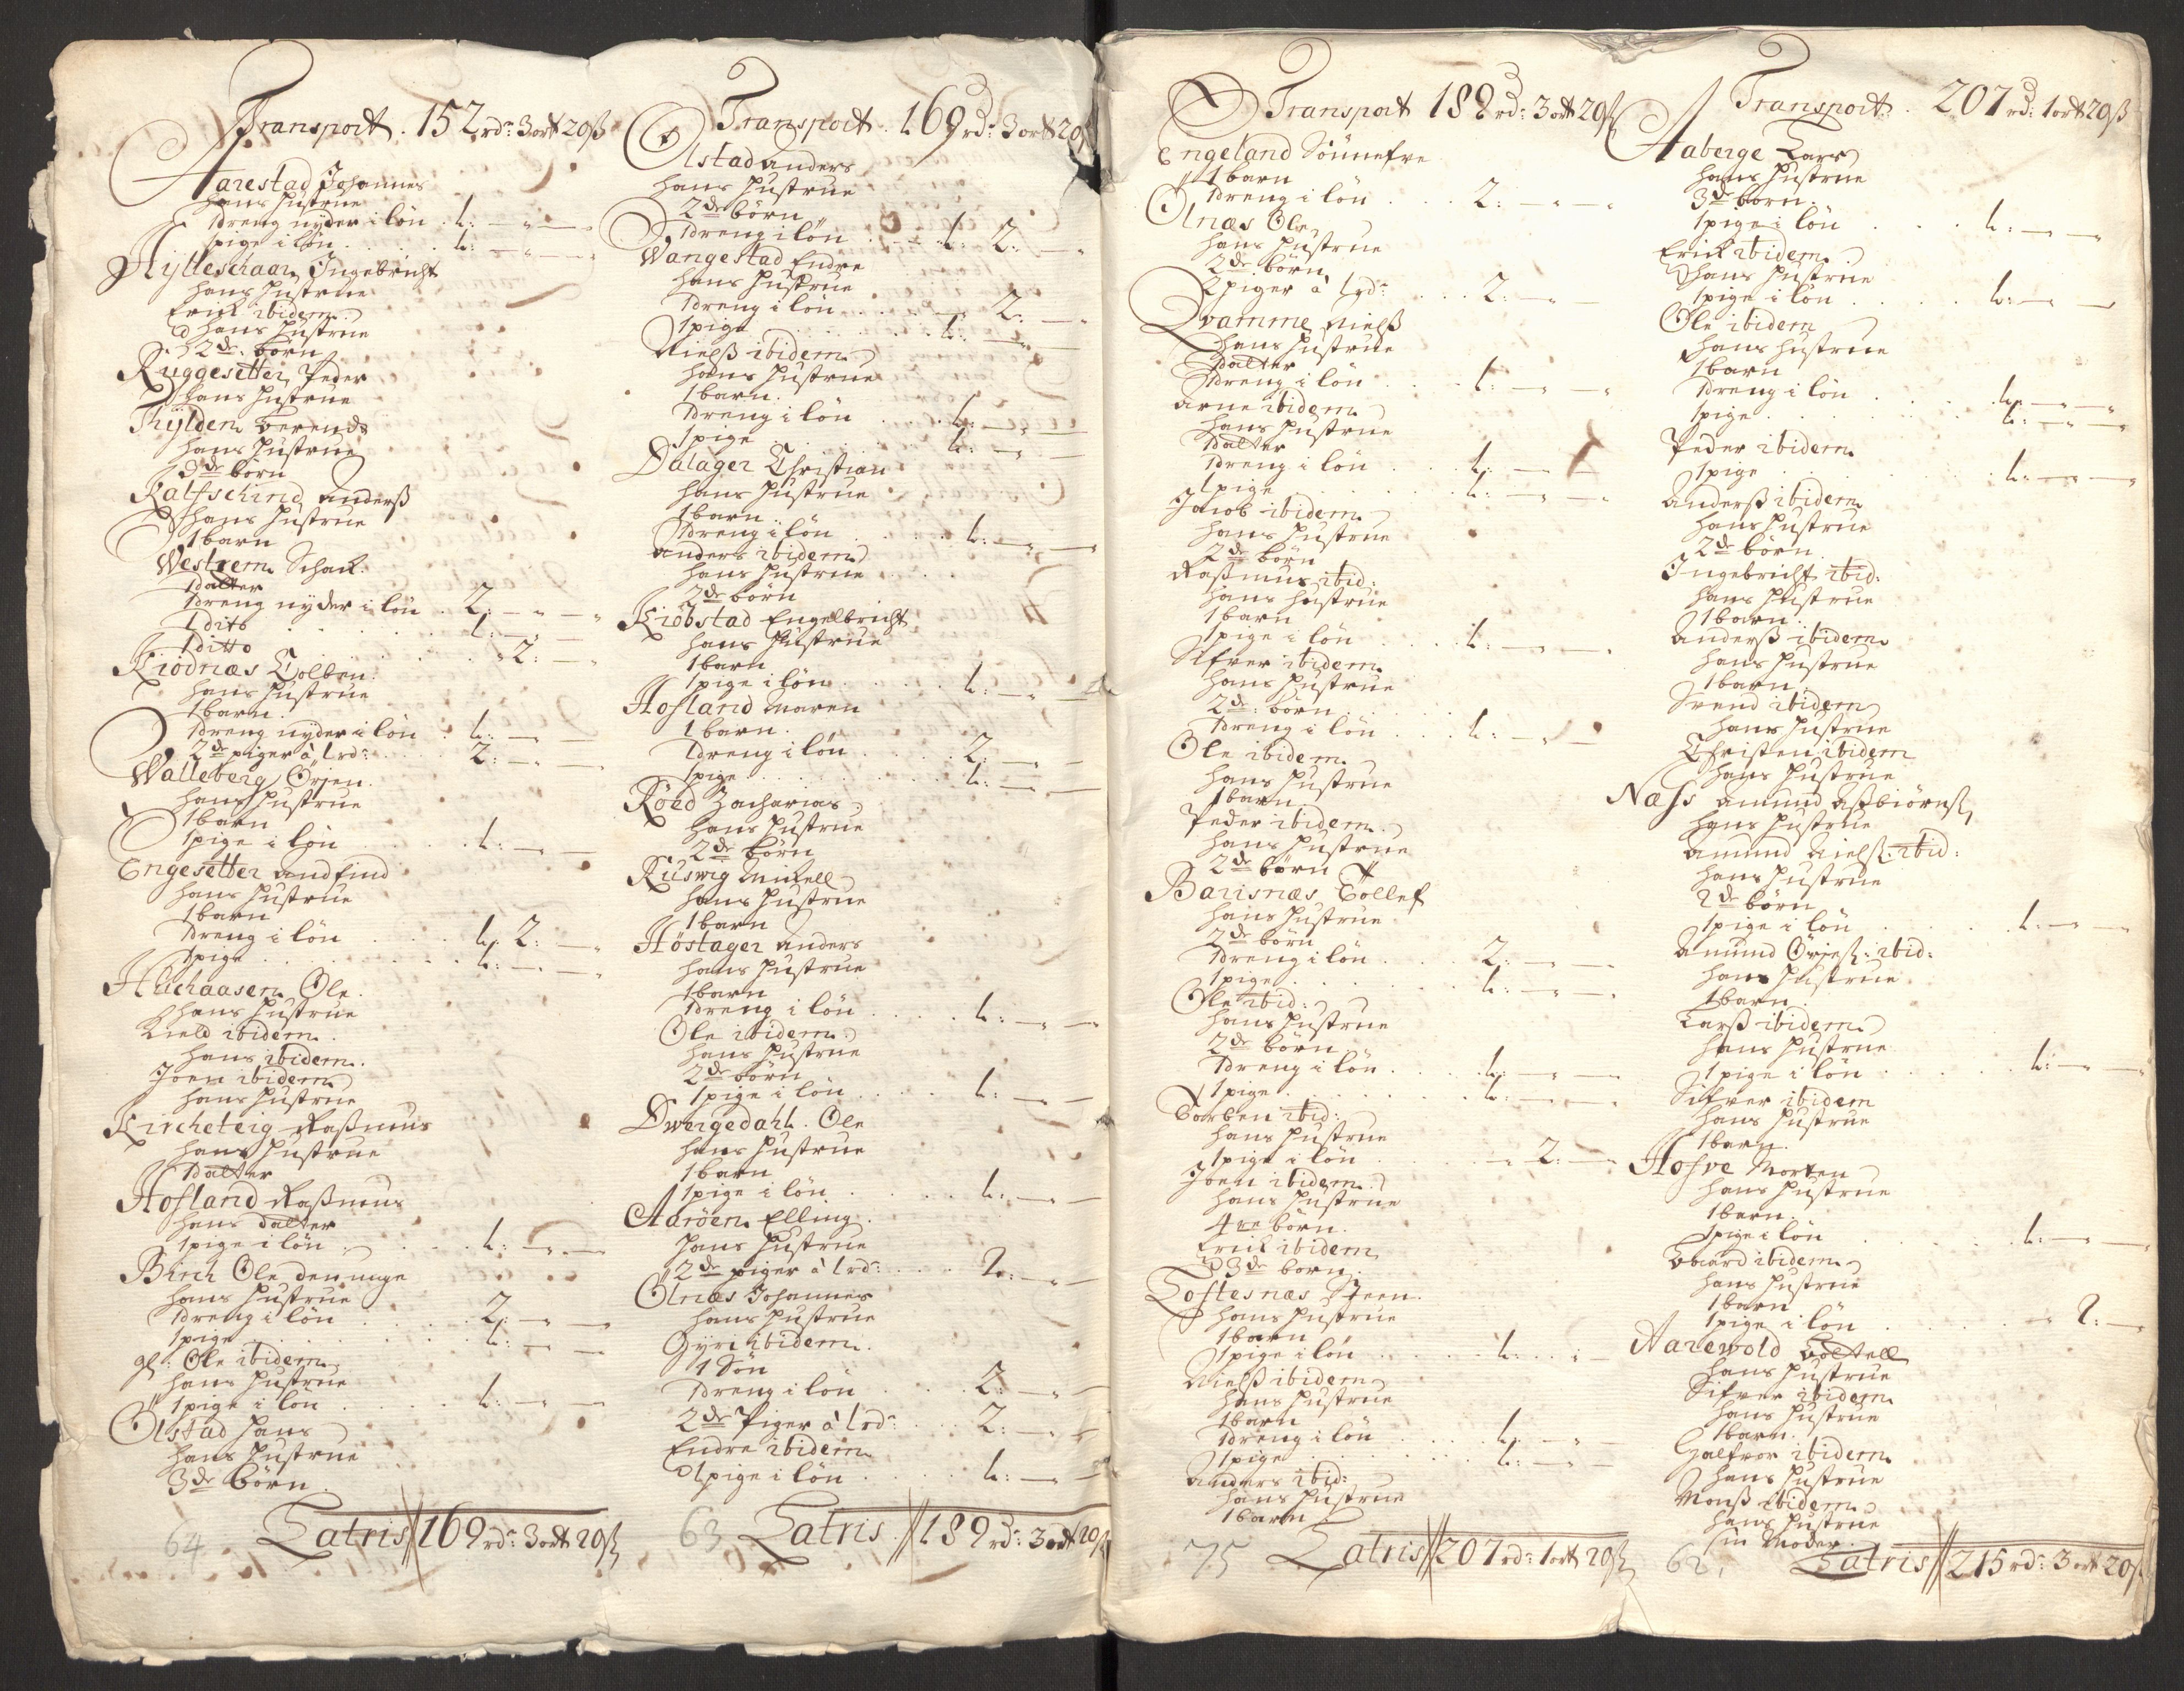 Transport. 152 rd: 3 ort 20 ß
Aarestad Johannes
hans hustrue
1 dreng nyder i lön . 1: — " —
1 pige i lön . . . 1: — " —
Hylleschaar, Ingebricht
hans hustrue
Erick ibidem
hans hustrue
2de börn
Ruggesetter, Peder
hans hustrue
Kylden Berend
hans hustrue
börn
Kalfschind, Anderß
hans hustrue
1 barn
Westrem Schack
1 dalter
1 dreng nyder i lön . 2: — " —
1 dito . . . 1: — —
1 ditto . . . 2: —
Kiödnæs Tolben
hans hustrue
1 barn.
1 dreng nyder i lön . 1: — —
2de piger à 1 rd: . . 2: — —
Walleberg, Örien
hans hustrue
1 barn
1 pige i lön . . . 1: — —
Engesetter Andfind
hans hustrue
1 barn
1 dreng i lön . . . 2: —
1 pige . . . 1: — —
Huchaasen Ole.
hans hustrue
Kield ibidem.
hans ibidem.
Joen ibidem
hans hustrue
Kircheteig Raßmus
hans hustrue
1 dalter
Hofland Raßmus
hans dalter
1 pige i lön . . . 1: — —
Birch Ole den unge
hans hustrue
1 dreng i lön . . . 2: — —
1 pige . . . 1: — —
gl: Ole ibidem
hans hustrue
1 pige i lön . . . 1: — —
Olstad Hans
hans hustrue
3de börn.
64 Latris // 169 rd: 3 ort 20 ß
Transport. 169 rd: 3 ort 20 ß
Olstad Anders
hans hustrue
2de börn
1 dreng i lön . . . 2: —
Wangestad Endre
hans hustrue
1 dreng i lön . . . 2: —
1 pige . . . 1: — —
Nielß ibidem
hans hustrue
1 barn.
1 dreng i lön . . . 1: — —
1 pige . . . 1: — —
Dalager Christian
hans hustrue
1 barn.
1 dreng i lön . . . 1: — —
Anders ibidem
hans hustrue
2de börn
Kiöbstad Engelbricht
hans hustrue
1 barn
1 pige i lön . . . 1: — —
Hofland Maren
1 barn.
1 dreng i lön . . . 2: — —
1 pige . . . 1: — —
Röed Zacharias
hans hustrue
2de börn
Rüswig Mickell
hans hustrue
1 barn
Höstager Anders
hans hustrue
1 barn
1 dreng i lön . . . 1: — —
Ole ibidem
hans hustrue
2de börn
1 pige i lön . . . 1: — —
Dwergedahl. Ole
hans hustrue
1 barn
1 pige i lön . . . 1: — —
Aaröen Elling.
hans hustrue
2de piger à 1 rd: . . 2: — —
Olnæs Johannes
hans hustrue
Gyri ibidem.
1 Sön
1 dreng i lön . . . 2: — —
2de Piger à 1 rd: . . 2: — —
Endre ibidem
1 pige i lön . . . 1: — —
63 Latris // 189 rd: 3 ort 20 ß
Transport 189 rd: 3 ort 20 ß
Engeland Sönnefve
1 barn
1 dreng i lön . . . 2: — —
Olnæs Ole
hans hustrue
2de börn
2 piger à 1 rd: . . 2: — —
Qvamme Nielß
hans hustrue
1 dalter
1 dreng i lön . . . 1: — —
Arne ibidem
hans hustrue
1 dalter
1 dreng i lön . . . 1: — —
1 pige . . . 1: — —
Jacob ibidem
hans hustrue
2de börn
Raßmus ibid:
hans hustrue
1 barn
1 pige i lön . . . 1: — —
Sifver ibidem
hans hustrue
2de börn.
1 dreng i lön . . . 1: — —
Ole ibidem.
hans hustrue
1 barn
Peder ibidem
hans hustrue
2de börn
Barisnæs Tollef
hans hustrue
2de börn
1 dreng i lön . . . 2: — —
1 pige . . . 1: — —
Ole ibid:
hans hustrue
2de börn
1 dreng i lön . . . 1: — —
1 pige . . . 1: — —
Torben ibid:
hans hustrue
1 pige i lön . . . 2: —
Joen ibidem
hans hustrue
4re börn.
Erick ibidem
3de børn.
Toftesnæs Steen.
hans hustrue
1 barn
1 pige i lön . . . 1: — —
Nielß ibidem
hans hustrue
1 barn
1 dreng i lön . . . 1: — —
1 pige . . . 1: — —
Anders ibid:
hans hustrue
1 barn
75 Latris // 207 rd: 1 ort 20 ß
Transport. 207 rd: 1 ort 20 ß
Aaberge Lars
hans hustrue
3de børn.
1 pige i lön . . . 1: — —
Erick ibidem
hans hustrue
1 pige i lön . . . 1: — —
Ole ibidem
hans hustrue
1 barn
1 dreng i lön . . . 1: — —
1 pige . . . 1: — —
Peder ibidem
1 pige . . . 1: — —
Anderß ibidem
hans hustrue
2de börn.
Ingebricht ibid:
hans hustrue
1 barn.
Anderß ibidem
hans hustrue
1 barn
Svend ibidem
hans hustrue
Christen ibidem
hans hustrue
Næss Amund Aßbiörnß
hans hustrue
Amund Nielß: ibid:
hans hustrue
2de börn
1 pige i lön . . . 1: — —
Amund Örieß: ibid:
hans hustrue
1 barn.
Larß ibidem
hans hustrue
1 pige i lön . . . 1: — —
Sifver ibidem
hans hustrue
1 barn.
Hofve Morten
hans hustrue
1 barn.
1 pige i lön . . . 1: — —
Baard ibidem
hans hustrue
1 barn
1 pige i lön . . . 2: —
Aarevold Boltell
hans hustrue
Sifver ibidem
hans hustrue
1 barn.
Halfvor ibidem
hans hustrue
Monß ibidem
hans hustrue
sin Moder.
62. Latris // 215 rd: 3 ort 20 ß